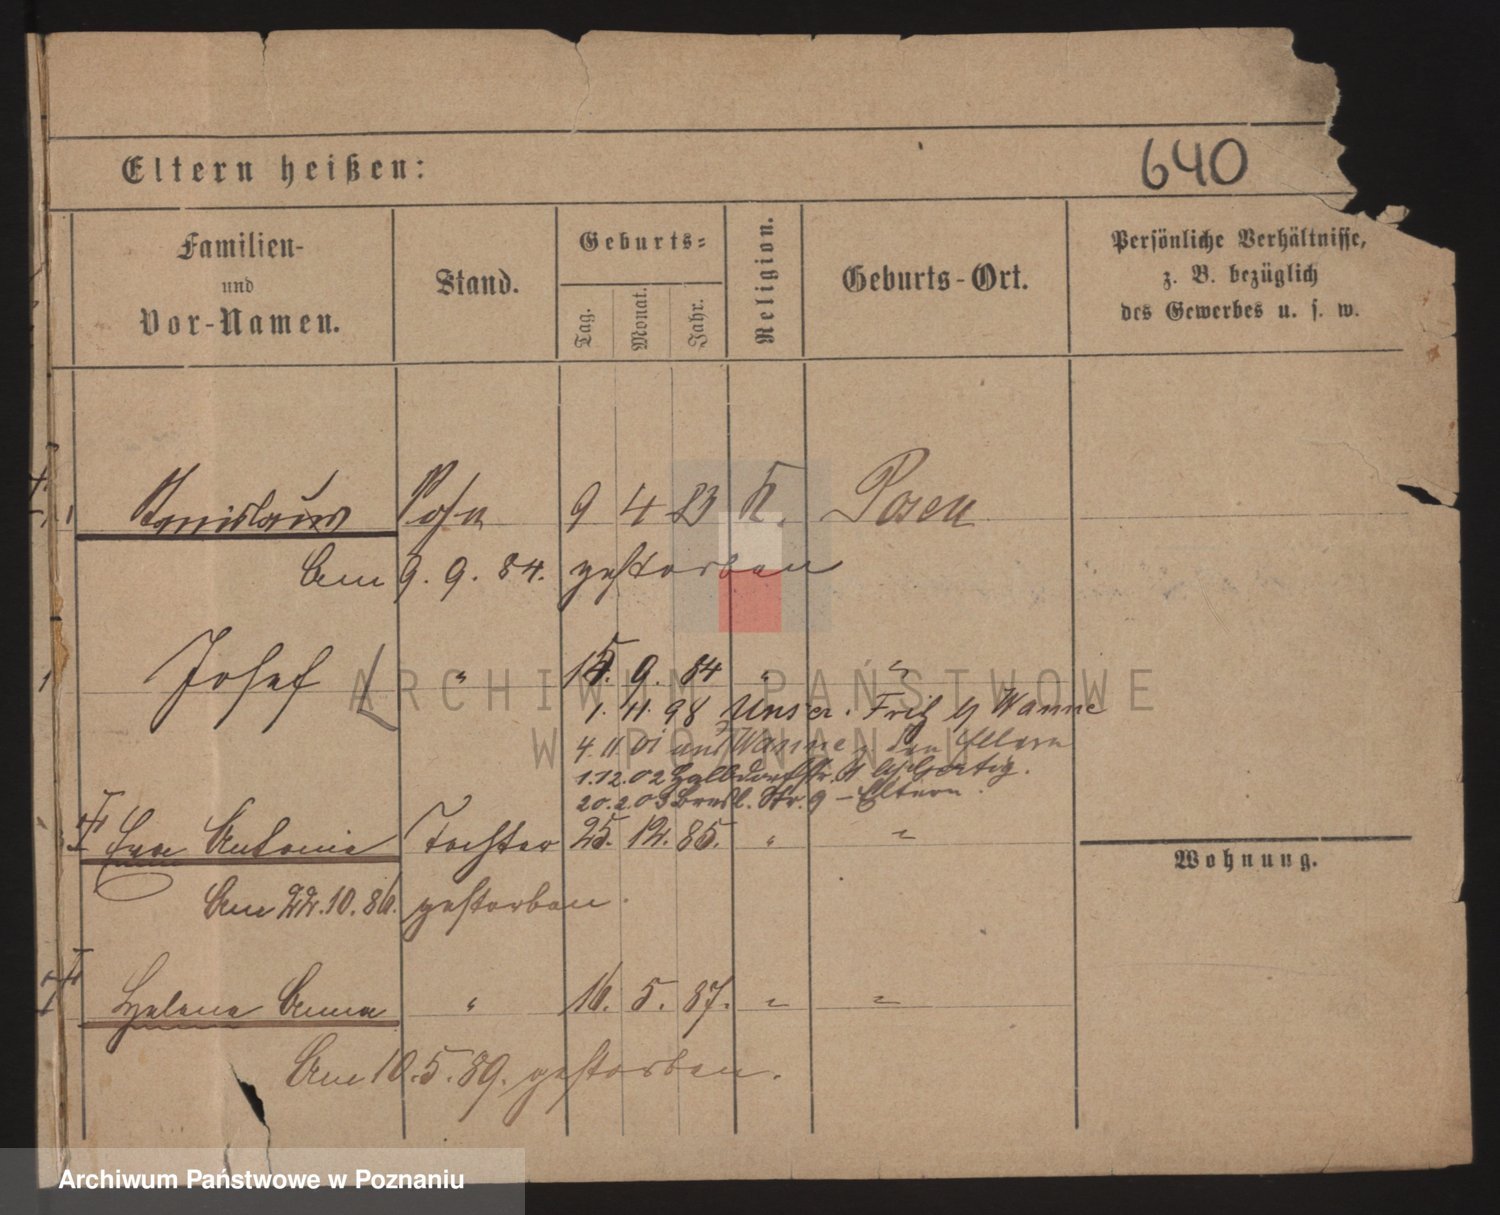 640
Eltern heißen:
Familien-
und
Vor-Namen.
Stand.
Geburts-
Tag.
Monat.
Jahr.
Religion.
Geburts-Ort.
Persönliche Verhältnisse,
z. B. bezüglich
des Gewerbes u. s. w.
Stanislaus Sohn 9 4 83 K. Posen
Am 9. 9. 84. gestorben
Josef " 15. 9. 84 " "
1. 11. 98 Unser Fritz b/ Wanne
4. 11. 01 aus Wanne z. den Eltern
1. 12. 02 Halbdorfstr.
20. 2. 03 Bresl. Str. 9 – Eltern.
Eva Antonie Tochter 25. 12. 85. " "
Wohnung.
Am 22. 10. 86. gestorben.
Helene Anna " 16. 5. 87. " "
Am 10. 5. 89. gestorben.
ARCHIWUM PAŃSTWOWE
W POZNANIU
Archiwum Państwowe w Poznaniu